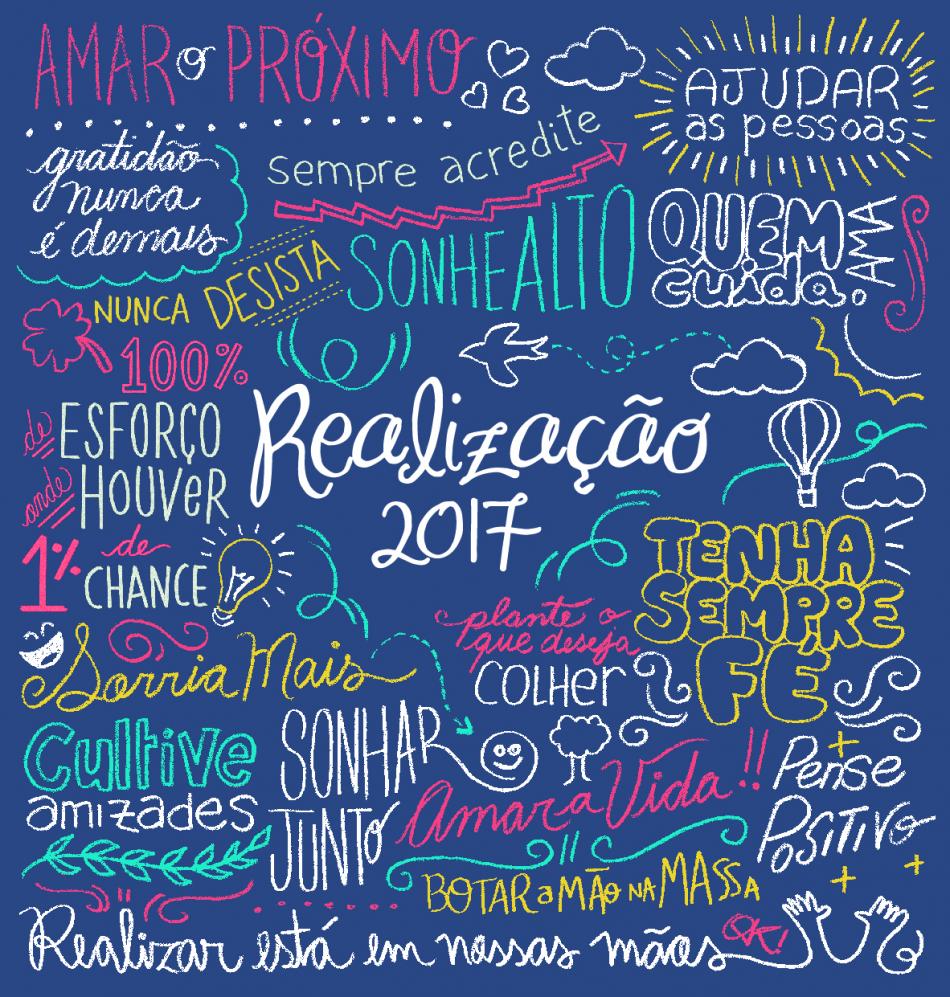 AMAR o PRÓXIMO
AJUDAR
as pessoas
gratidão
nunca
é demais
sempre acredite
SONHE ALTO
QUEM
cuida.
AMA
NUNCA DESISTA
100%
de
ESFORÇO
onde
HOUVER
1% de
CHANCE
Realização
2017
TENHA
SEMPRE
FÉ
plante o
que deseja
COLHER
Sorria Mais
Cultive
amizades
SONHAR
JUNTO
Amar a Vida!!
Pense
POSITIVO
BOTAR a MÃO NA MASSA
Realizar está em nossas mãos
OK!